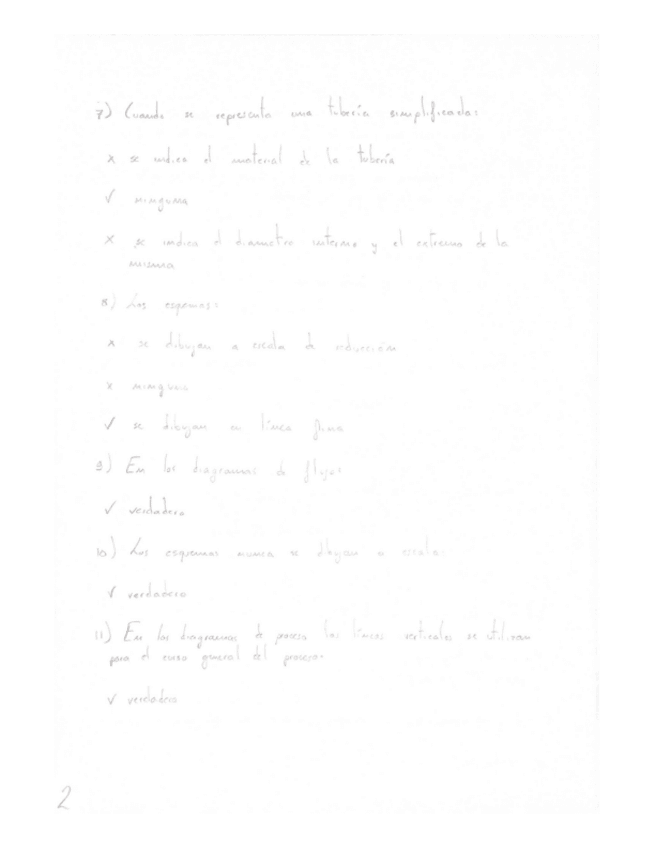 7) Cuando se representa una tubería simplificada:
x se indica el material de la tubería
✓ ninguna
x se indica el diametro interno y el extremo de la
misma
8) Los esquemas:
x se dibujan a escala de reducción
x ninguna
✓ se dibujan en línea fina
9) En los diagramas de flujo:
✓ verdadero
10) Los esquemas nunca se dibujan a escala:
✓ verdadero
11) En los diagramas de proceso las líneas verticales se utilizan
para el curso general del proceso:
✓ verdadero
2